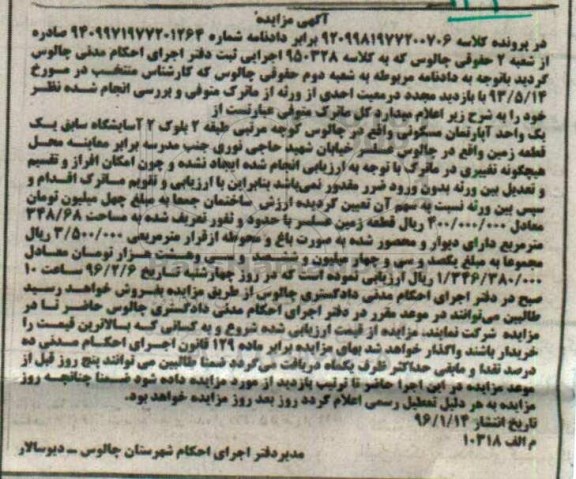 آگهی مزایده
در پرونده کلاسه ۹۲۰۹۹۸۱۹۷۷۲۰۰۷۰۶ برابر دادنامه شماره ۹۴۰۹۹۷۱۹۷۷۲۰۱۲۶۴ صادره
از شعبه ۲ حقوقی چالوس که به کلاسه ۹۵۰۳۲۸ اجرایی ثبت دفتر اجرای احکام مدنی چالوس
گردید باتوجه به دادنامه مربوطه به شعبه دوم حقوقی چالوس که کارشناس منتخب در مورخ
۹۳/۵/۱۴ با بازدید مجدد درمعیت احدی از ورثه از ماترک متوفی و بررسی انجام شده نظر
خود را به شرح زیر اعلام میدارد کل ماترک متوفی عبارتست از
یک واحد آپارتمان مسکونی واقع در چالوس کوچه مرتبی طبقه ۲ بلوک ۲ آسایشگاه سابق یک
قطعه زمین واقع در چالوس خیابان شهید حاجی نوری جنب مدرسه برابر معاینه محل
هیچگونه تغییری در ماترک با توجه به ارزیابی انجام شده ایجاد نشده و چون امکان افراز و تقسیم
و تعدیل بین ورثه بدون ورود ضرر مقدور نمی‌باشد بنابراین با ارزیابی و تقویم ماترک اقدام و
سپس بین ورثه نسبت به سهم آن تعیین گردیده ارزش ساختمان جمعا به مبلغ چهل میلیون تومان
معادل ۴۰۰/۰۰۰/۰۰۰ ریال قطعه زمین با حدود و ثغور تعریف شده به مساحت ۳۴۸/۶۸
مترمربع دارای دیوار و محصور شده به صورت باغ و محوطه ازقرار مترمربعی ۳/۵۰۰/۰۰۰ ریال
مجموعا به مبلغ یکصد و سی و چهار میلیون و ششصد و سی و هشت هزار تومان معادل
۱/۳۴۶/۳۸۰/۰۰۰ ریال ارزیابی نموده است که در روز چهارشنبه تاریخ ۹۶/۲/۶ ساعت ۱۰
صبح در دفتر اجرای احکام مدنی دادگستری چالوس از طریق مزایده بفروش خواهد رسید
طالبین می‌توانند در موعد مقرر در دفتر اجرای احکام مدنی دادگستری چالوس حاضر تا در
مزایده شرکت نمایند، مزایده از قیمت ارزیابی شده شروع و به کسانی که بالاترین قیمت را
خریدار باشند واگذار خواهد شد بهای مزایده برابر ماده ۱۲۹ قانون اجرای احکام مدنی ده
درصد نقدا و مابقی حداکثر ظرف یکماه دریافت می‌گردد ضمنا طالبین می توانند پنج روز قبل از
موعد مزایده در این اجرا حاضر تا ترتیب بازدید از مورد مزایده داده شود ضمنا چنانچه روز
مزایده به هر دلیل تعطیل رسمی اعلام گردد روز بعد روز مزایده خواهد بود.
تاریخ انتشار ۹۶/۱/۱۴
م الف ۱۰۳۱۸
مدیردفتر اجرای احکام شهرستان چالوس ــ دیوسالار